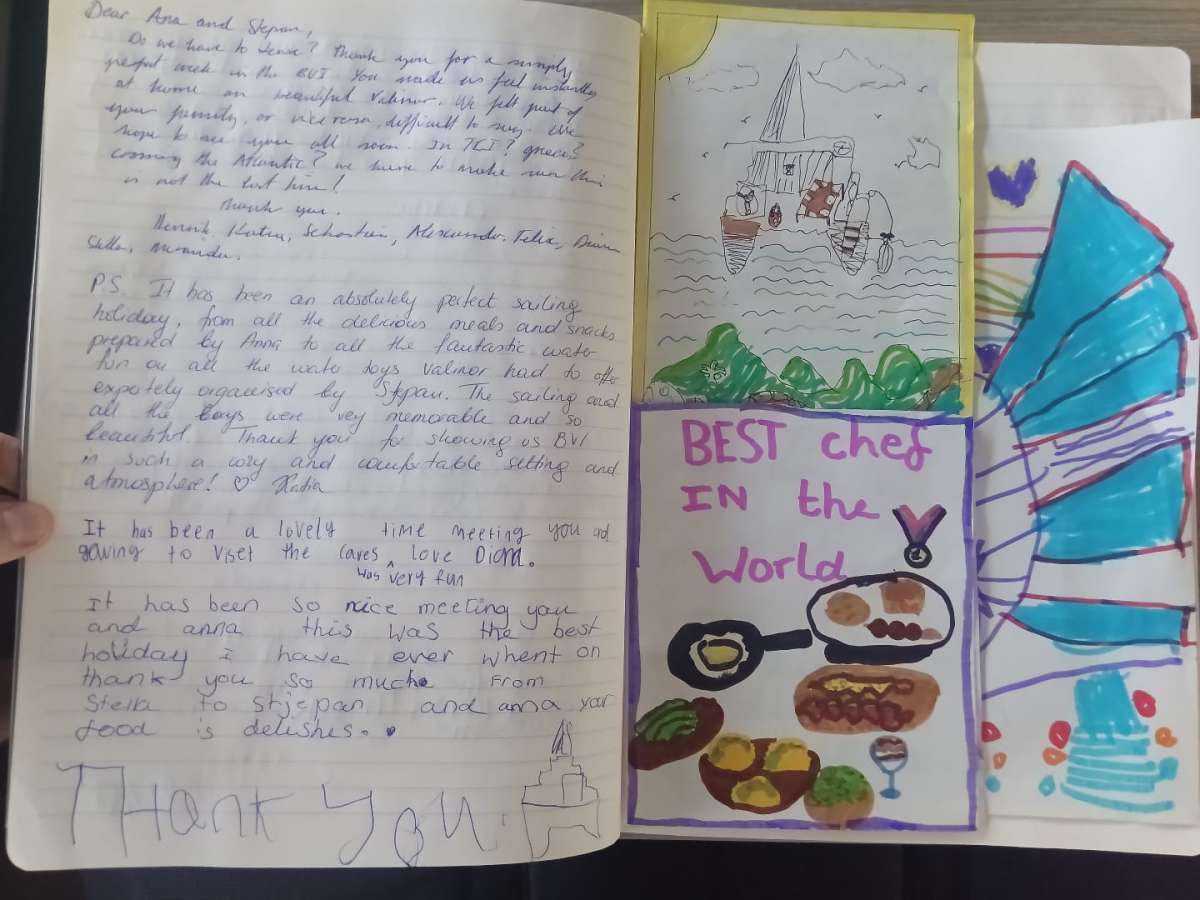 Dear Ana and Stepan,
Do we have to leave? Thank you for a simply
perfect week in the BVI. You made us feel instantly
at home on beautiful Valinor. We felt part of
your family, or vice versa, difficult to say. We
hope to see you all soon. In TCI? Greece?
Crossing the Atlantic? We have to make sure this
is not the last time!
Thank you.
Henrik, Katia, Sebastian, Alexander, Felix, Diana
PS. It has been an absolutely perfect sailing
holiday, from all the delicious meals and snacks
prepared by Anna to all the fantastic water
fun on all the water toys Valinor had to offer
expertely organised by Stepan. The sailing and
all the bays were very memorable and so
beautiful. Thank you for showing us BVI
in such a cozy and comfortable setting and
atmosphere! ♡ Katia
It has been a lovely time meeting you and
gowing to viset the caves love Diana.
was very fun
It has been so nice meeting you
and anna this was the best
holiday I have ever whent on
thank you so muche from
Stella to stjepan and anna your
food is delishes. ♥
Thank You
BEST chef
IN the
World
1